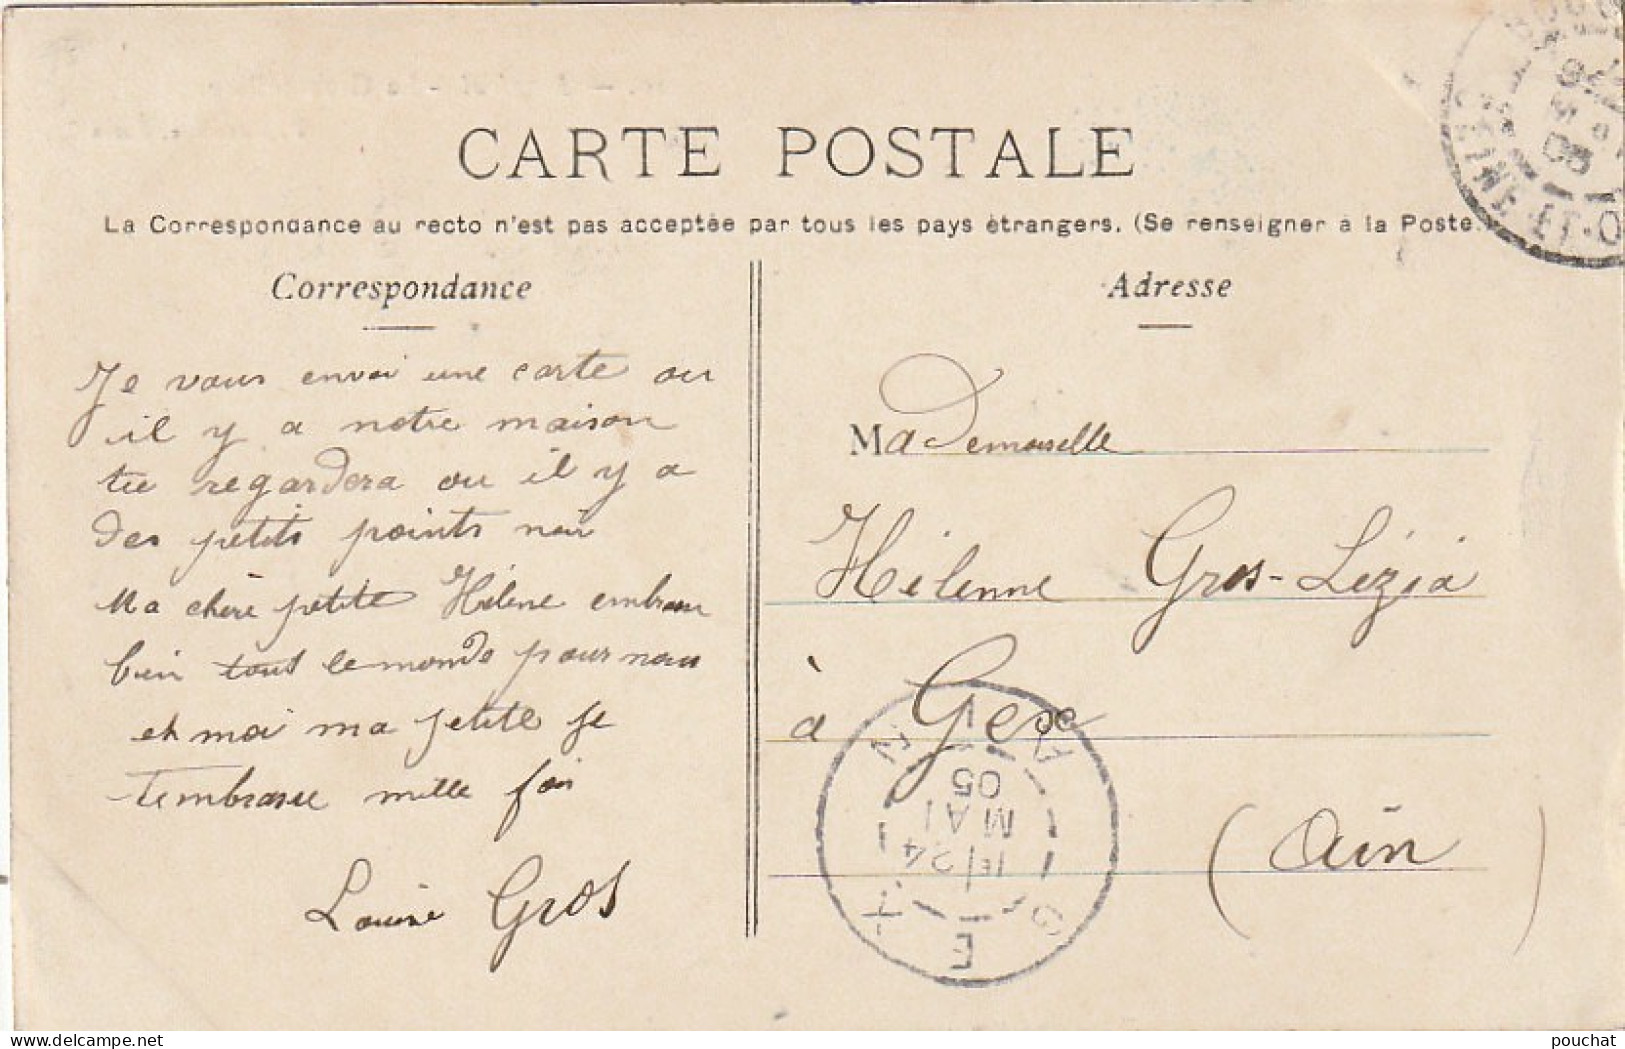 CARTE POSTALE
La Correspondance au recto n'est pas acceptée par tous les pays étrangers. (Se renseigner à la Poste.)
Correspondance
Je vous envoi une carte ou
il y a notre maison
tu regardera ou il y a
des petits points noir
Ma chère petite Hélène embrasse
bien tous le monde pour nous
et moi ma petite je
t'embrasse mille fois
Louise Gros
Adresse
MaDemoiselle
Hélenne Gros-Lézia
à Gex
(Ain)
GEX
AIN
1E/24
MAI
05
SEINE-ET-O
05
delcampe.net
pouchat